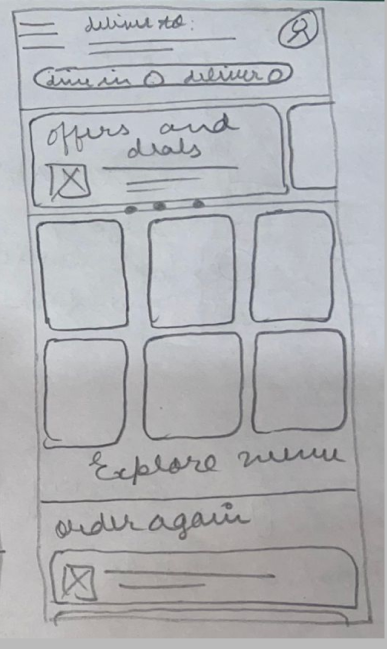 deliver to:
dine in deliver
offers and
deals
Explore menu
order again